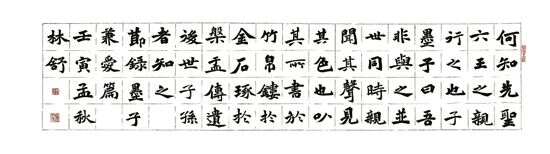 何知先聖
六王之親
行之也子
墨子曰吾
非與之並
世同時親
聞其聲見
其色也以
其所書於
竹帛鏤於
金石琢於
槃盂傳遺
後世子孫
者知之
節録墨子
兼愛篇
壬寅孟秋
林舒